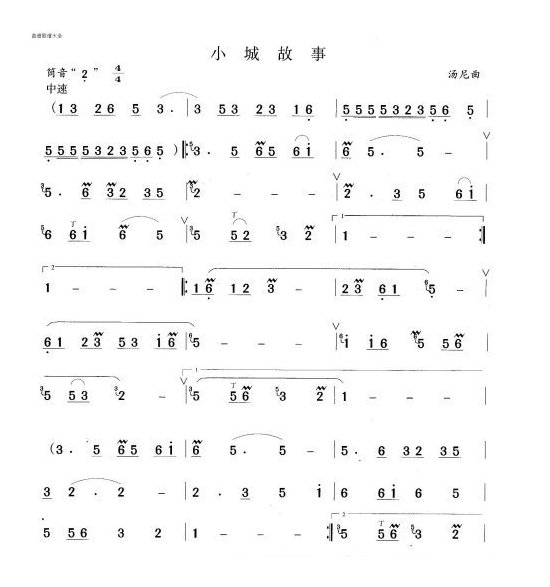 曲谱歌谱大全
小城故事
筒音“2” 4/4 汤尼曲
中速
(13 26 5 3· | 3 53 23 16 | 555532356 5 |
5555323565 ) |: 3· 5 65 6i | 6 5· 5 – |
5· 6 32 35 | 2 – – – | 2· 3 5 6i |
6 6i 6 5 | 5 52 3 2 | 1 – – – :|
1 – – – |: 16 12 3 – | 23 61 5 – |
61 23 53 i6 | 5 – – – | i i6 5 56 |
5 53 2 – | 5 56 3 2 | 1 – – – |
(3· 5 65 6i | 6 5· 5 – | 5· 6 32 35 |
3 2· 2 – | 2· 3 5 i | 6 6i 6 5 |
5 56 3 2 | 1 – – – :| 5 56 3 2 |